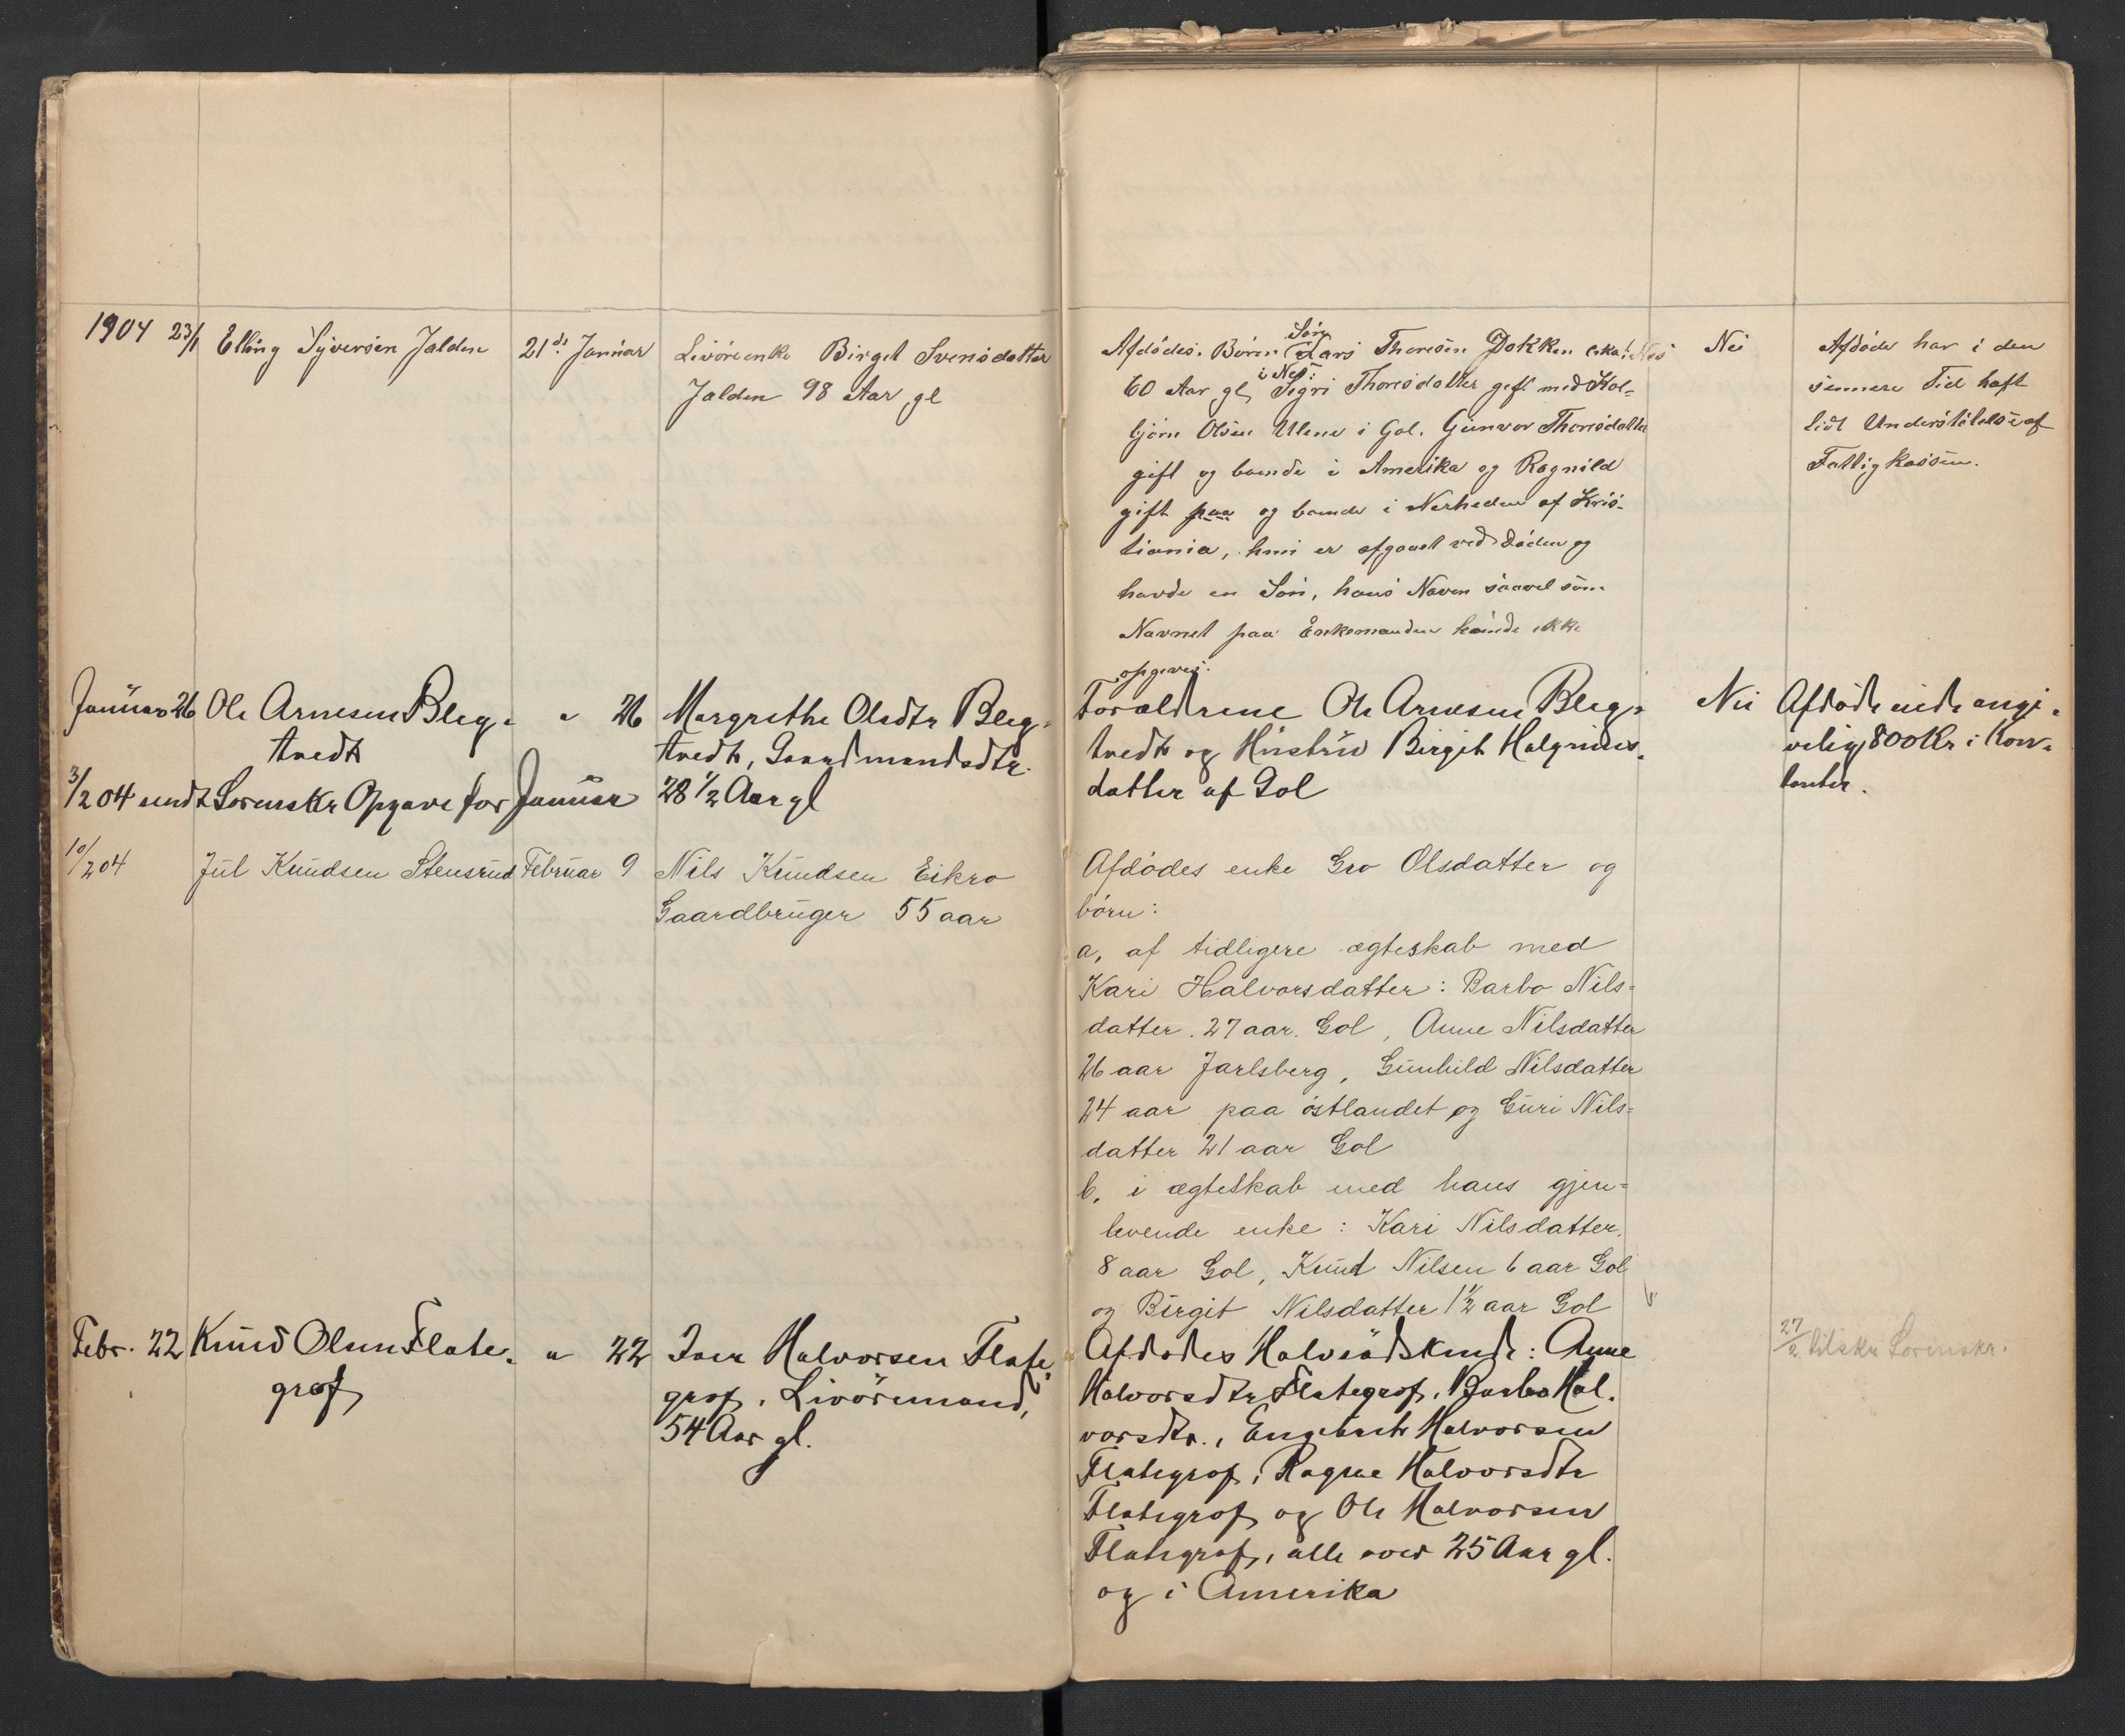 1904 23/1 Elling Syversen Jalden 21de Januar Livöreenke Birget Svensdatter
Jalden 98 Aar gl
Afdödes Börn: Lars Thoresen Dokken
60 Aar gl, i Næs: Sigri Thoresdatter gift med Kol-
björn Olsen Ulene i Gol. Gunvor Thoresdatter
gift og boende i Amerika og Ragnild
gift paa og boende i Nerheden af Kris-
tiania, hun er afgaaet ved Döden og
havde en Sön, hans Navn saavel som
Navnet paa Enkemanden kunde ikke
opgives.
Nei
Afdöde har i den
sennere Tid haft
lidt Understötelse af
Fattigkassen.
Januar 26 Ole Arnesen Bleg-
tvedt
" 26 Margrethe Olsdtr Bleg-
tvedt, Gaardmandsdtr.
28 1/2 Aar gl
Forældrene Ole Arnesen Bleg-
tvedt og Hustru Birgit Halgrims-
datter af Gol
Nei
Afdöde eide angi-
velig 800 Kr i Kon-
tanter.
3/2 04 sendt Sorenskr Opgave for Januar
10/2 04 Jul Knudsen Stensrud Februar 9 Nils Knudsen Eikro
Gaardbruger 55 aar
Afdödes enke Gro Olsdatter og
börn:
a, af tidligere ægteskab med
Kari Halvorsdatter: Barbo Nils-
datter. 27 aar. Gol, Anne Nilsdatter
26 aar Jarlsberg, Gunhild Nilsdatter
24 aar paa östlandet og Guri Nils-
datter 21 aar Gol
b, i ægteskab med hans gjen-
levende enke: Kari Nilsdatter
8 aar Gol, Knut Nilsen 6 aar Gol
og Birgit Nilsdatter 1 1/2 aar Gol
Febr. 22 Knud Olsen Flate-
grof
" 22 Iver Halvorsen Flate-
grof, Livöremand,
54 Aar gl.
Afdödes Halvsödskende: Anne
Halvorsdtr Flategrof, Barbo Hal-
vorsdtr., Engebret Halvorsen
Flategrof, Ragne Halvorsdtr
Flategrof og Ole Halvorsen
Flategrof, alle over 25 Aar gl.
og i Amerika
27/2 tilskr Sorenskr.